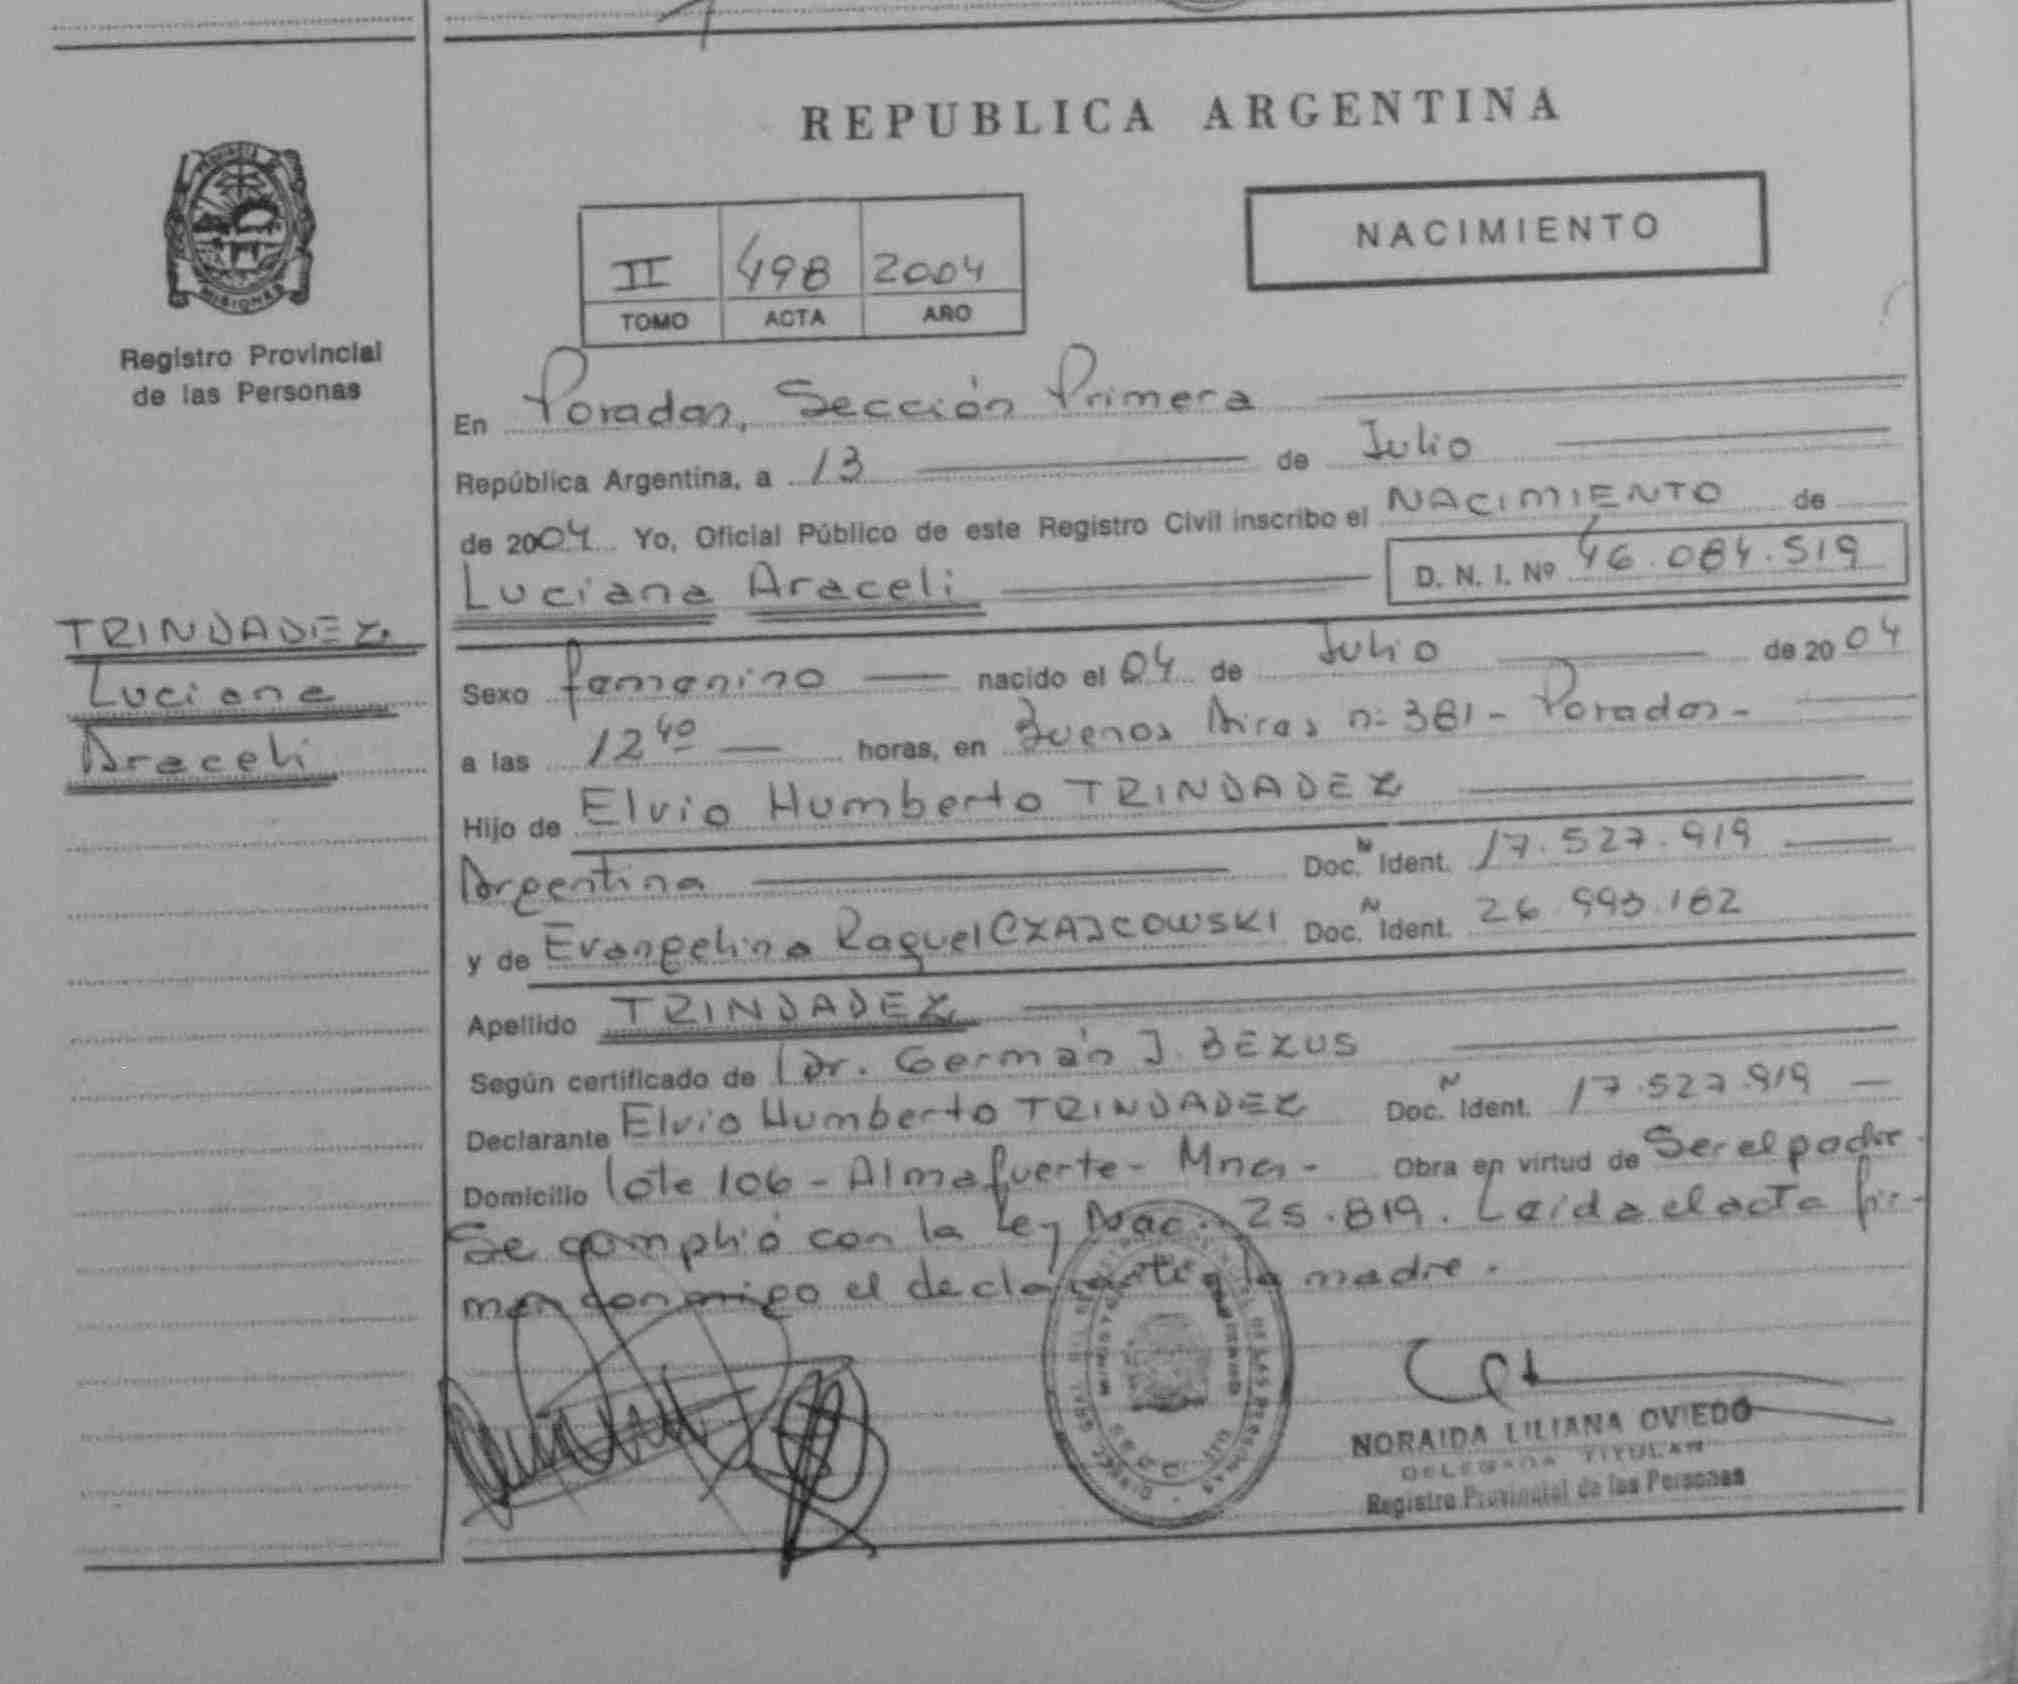 REPUBLICA ARGENTINA
NACIMIENTO
II 498 2004
TOMO ACTA AÑO
PROVINCIA DE
MISIONES
Registro Provincial
de las Personas
TRINDADEZ
Luciana
Araceli
En Posadas, Sección Primera
República Argentina, a 13 de Julio
de 2004 Yo, Oficial Público de este Registro Civil inscribo el NACIMIENTO de
Luciana Araceli D. N. I. Nº 46.084.519
Sexo femenino nacido el 04 de Julio de 2004
a las 12 40 horas, en Buenos Aires nº 381 - Posadas -
Hijo de Elvio Humberto TRINDADEZ
Argentina Doc. N Ident. 17.527.919
y de Evangelina Raquel CZAJCOWSKI Doc. N Ident. 26.993.162
Apellido TRINDADEZ
Según certificado de Dr. Germán J. BEZUS
Declarante Elvio Humberto TRINDADEZ Doc. N Ident. 17.527.919
Domicilio lote 106 - Almafuerte - Mnes - Obra en virtud de Ser el padre.
Se cumplió con la Ley Nac. 25.819. Leída el acta fir-
man conmigo el declarante y la madre.
NORAIDA LILIANA OVIEDO
DELEGADA TITULAR
Registro Provincial de las Personas